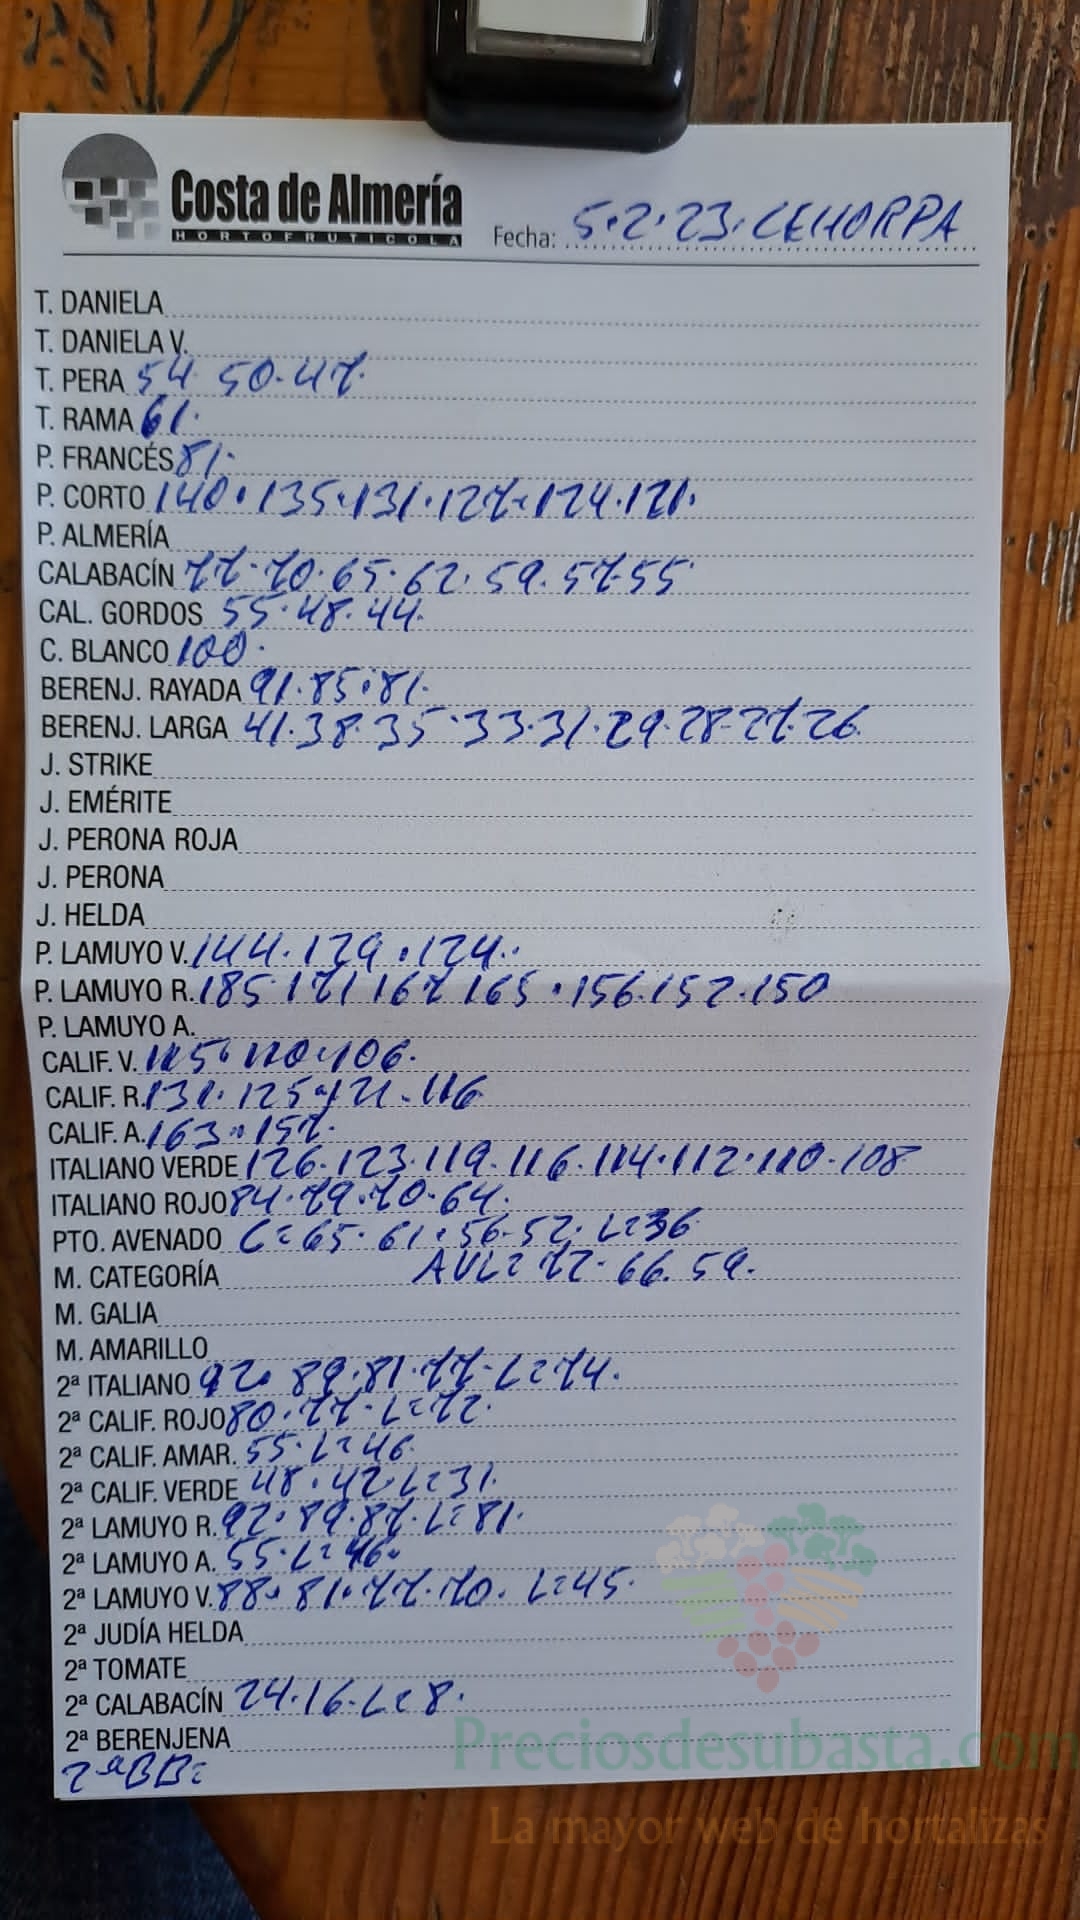 Costa de Almería
HORTOFRUTICOLA
Fecha: 5.2.23. CEHORPA
T. DANIELA
T. DANIELA V.
T. PERA 54 50.47.
T. RAMA 61.
P. FRANCÉS 81.
P. CORTO 140.135.131.127.124.121.
P. ALMERÍA
CALABACÍN 77.70.65.62.59.57.55
CAL. GORDOS 55.48.44.
C. BLANCO 100.
BERENJ. RAYADA 91.85.81.
BERENJ. LARGA 41.38.35.33.31.29.28.27.26
J. STRIKE
J. EMÉRITE
J. PERONA ROJA
J. PERONA
J. HELDA
P. LAMUYO V. 144.129.124.
P. LAMUYO R. 185 171 167 165.156.152.150
P. LAMUYO A.
CALIF. V. 115.110.106.
CALIF. R. 131.125.121.116
CALIF. A. 163.157.
ITALIANO VERDE 126.123.119.116.114.112.110.108
ITALIANO ROJO 84.79.70.64.
PTO. AVENADO C=65.61.56.52. L=36
M. CATEGORÍA AVL=72.66.59.
M. GALIA
M. AMARILLO
2ª ITALIANO 92.89.81.77.L=74.
2ª CALIF. ROJO 80.77.L=72.
2ª CALIF. AMAR. 55.L=46
2ª CALIF. VERDE 48.42.L=31.
2ª LAMUYO R. 92.89.87.L=81.
2ª LAMUYO A. 55.L=46.
2ª LAMUYO V. 88.81.77.70. L=45.
2ª JUDÍA HELDA
2ª TOMATE
2ª CALABACÍN 24.16.L=8.
2ª BERENJENA
2ªBB=
Preciosdesubasta.com
La mayor web de hortalizas